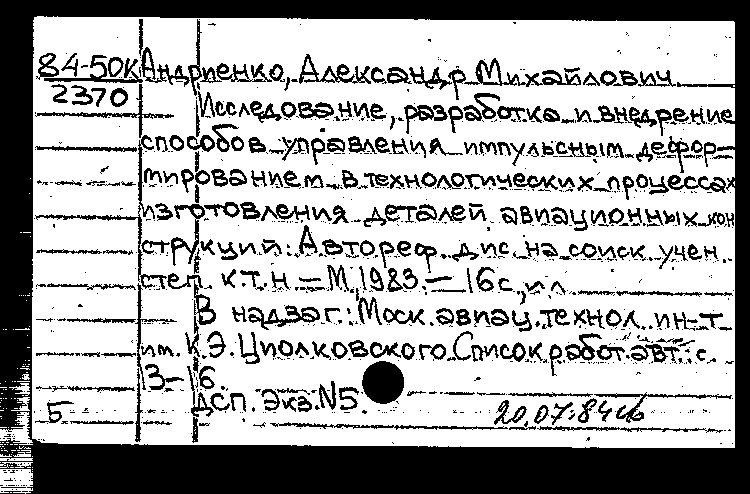 84-50К Андриенко, Александр Михайлович.
2370 Исследование, разработка и внедрение
способов управления импульсным дефор-
мированием в технологических процессах
изготовления деталей авиационных кон
струкций: Автореф. дис. на соиск учен.
степ. к.т.н. – М, 1983. – 16 с, ил
В надзаг.: Моск. авиац. технол. ин-т
им. К.Э. Циолковского. Список работ авт.: с.
13–16.
ДСП. Экз. N5.
Б 20.07.84